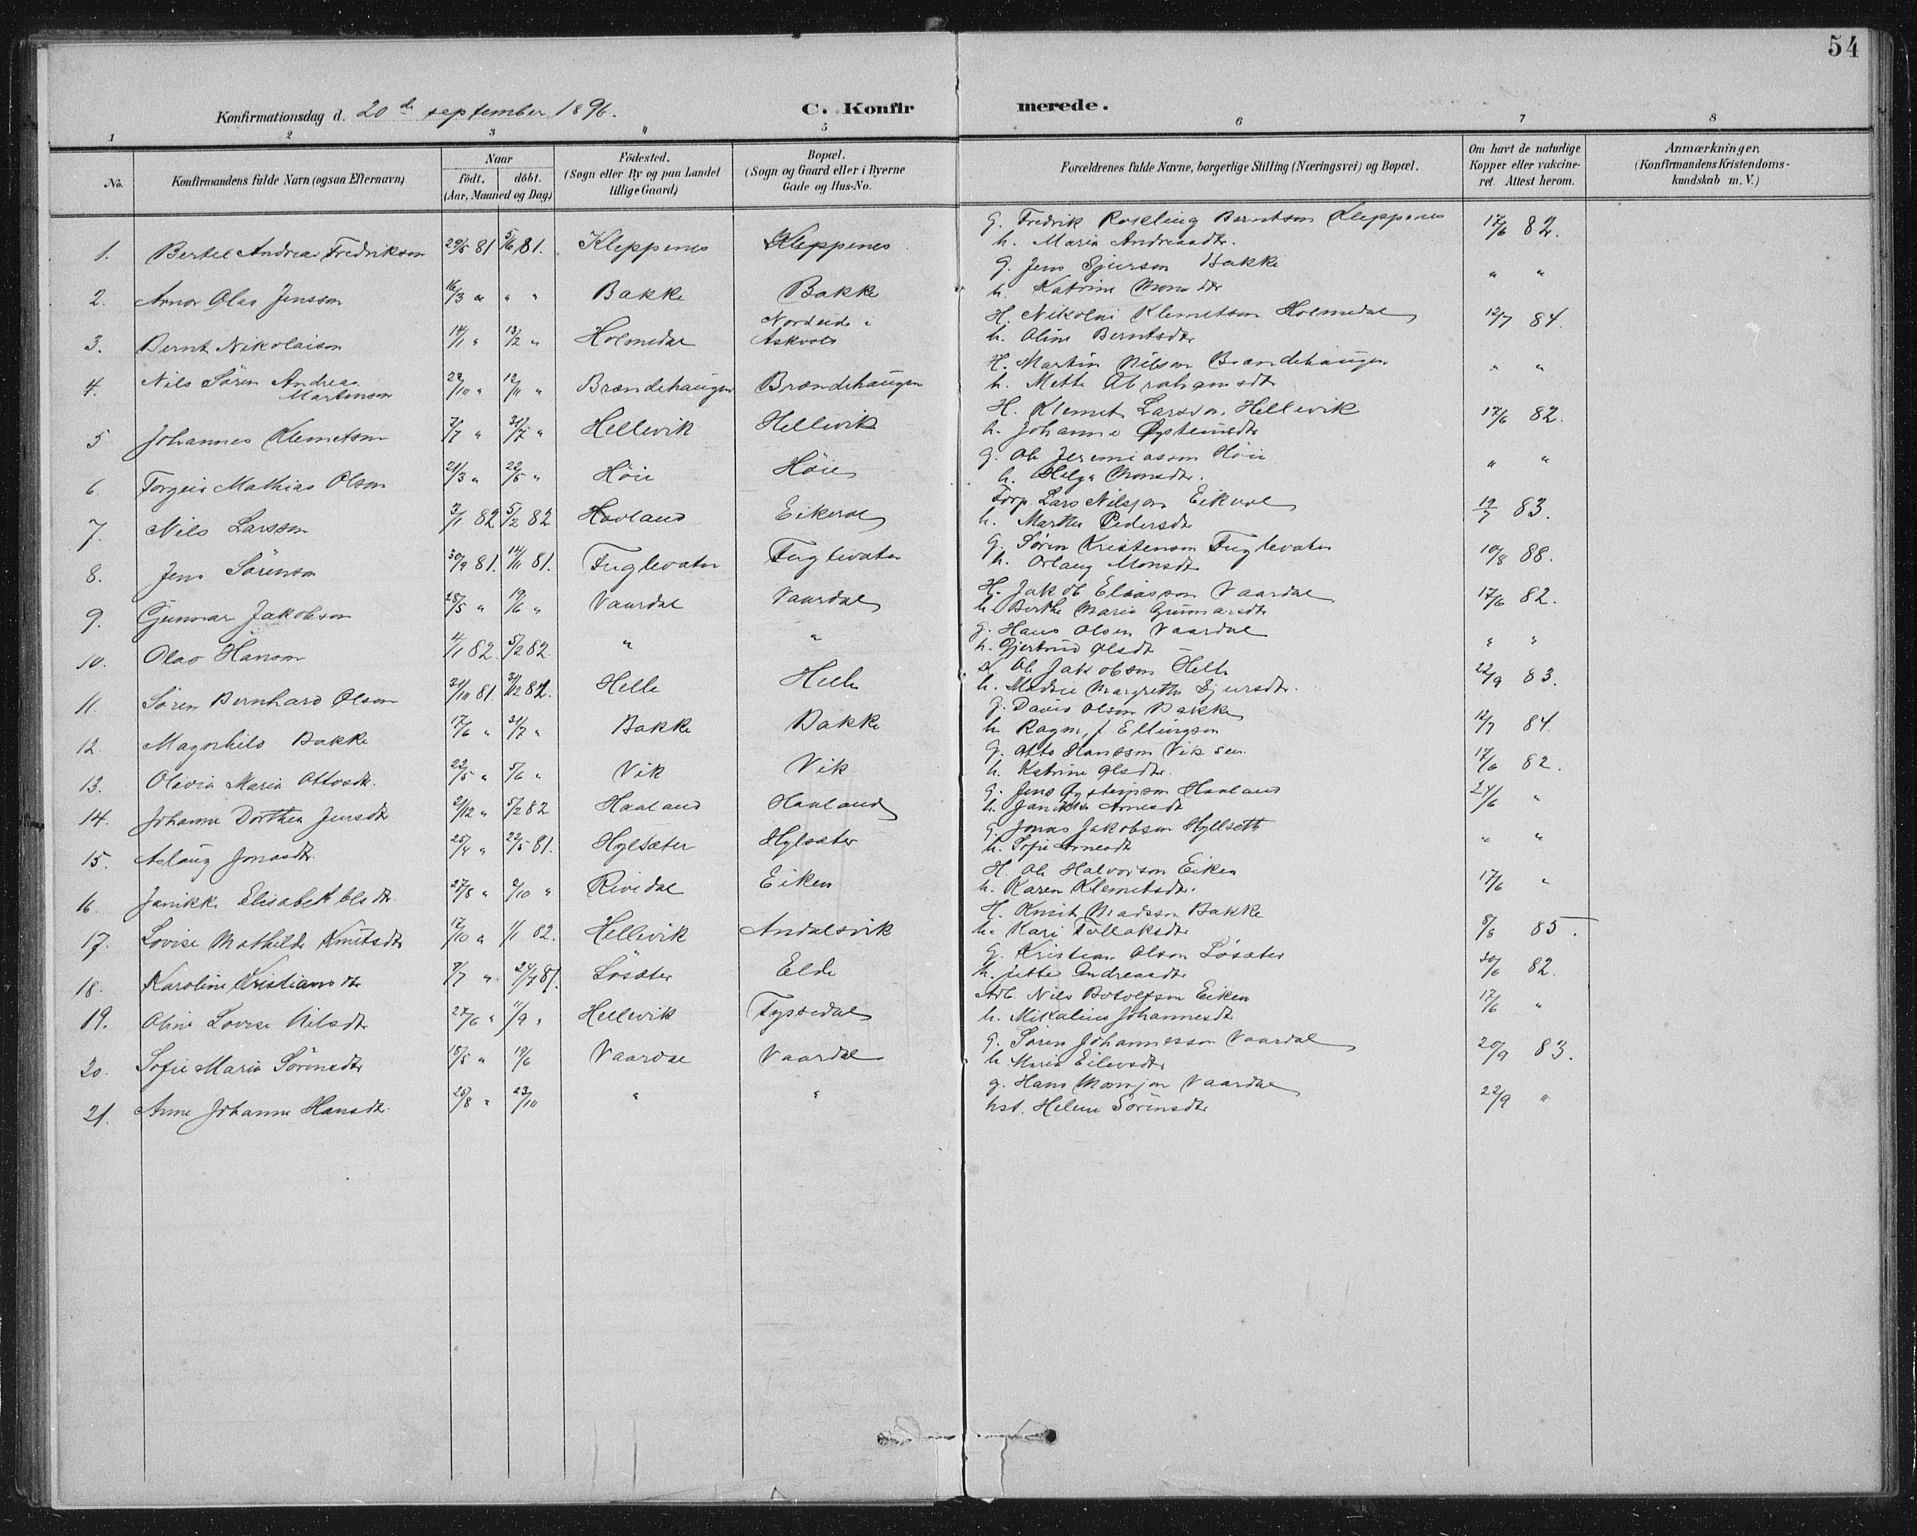 54
Konfirmationsdag d. 20de september 1896.
C. Konfirmerede.
1 2 3 4 5 6 7 8
No.
Konfirmandens fulde Navn (ogsaa Efternavn)
Naar
født, døbt.
(Aar, Maaned og Dag)
Fødested.
(Sogn eller By og paa Landet
tillige Gaard)
Bopæl.
(Sogn og Gaard eller i Byerne
Gade og Hus-No.
Forældrenes fulde Navne, borgerlige Stilling (Næringsvei) og Bopæl.
Om havt de naturlige
Kopper eller vakcine-
ret. Attest herom.
Anmærkninger.
(Konfirmandens Kristendoms-
kundskab m. V.)
1. Bertel Andreas Fredrikson 29/5 81 5/6 81. Kleppenes Kleppenes G. Fredrik Berntson Kleppenes 17/6 82.
h. Maria Andreasdtr.
2. Arnor Olai Jensson 16/3 " " " Bakke Bakke G. Jens Sjurson Bakke " "
h. Katrine Monsdtr
3. Bernt Nikolaison 14/1 " 13/2 " Holmedal Nordeide i
Askvold H. Nikolai Klemetson Holmedal 12/7 84.
h. Oline Berntsdtr
4. Nils Søren Andreas
Martinson 29/10 " 12/11 " Brændehaugen Brændehaugen H. Martin Nilson Brændehaugen " "
h. Mette Abrahamsdtr
5. Johannes Klemetson 7/7 " 31/7 " Hellevik Hellevik H. Klemet Larsson, Hellevik 17/6 82.
h. Johanne Øysteinsdtr
6. Torgeir Mathias Olson 21/3 " 22/5 " Høie Høie G. Ole Jeremiasson Høie " "
h. Helga Monsdtr.
7. Nils Larsson 3/1 82 5/2 82 Havland Eikevol Forp Lars Nilsson Eikvol 12/7 83.
h. Marthe Pedersdtr
8. Jens Sørenson 30/9 81. 14/11 81. Fuglevatn Fuglevatn G. Søren Kristenson Fuglevatn 10/8 88.
h. Orlaug Monsdtr
9. Gunnar Jakobson 28/5 " 19/6 " Vaardal Vaardal H. Jakob Eliasson Vaardal 17/6 82.
h. Berthe Maria Gunnarsdtr
10. Olav Hanson 4/1 82. 5/2 82. " " G. Hans Olsen Vaardal " "
h. Gjertrud Olsdt
11. Søren Bernhard Olson 31/10 81. 31/12 82. Helle Helle Ole Jakobson Helle 22/9 83.
h. Margrethe Sjursdtr.
12. Magnhild Bakke 17/6 " 31/7 " Bakke Bakke G. David Olson Bakke 12/7 84.
h. Ragn. f Ellingson
13. Olivia Maria Ottosdtr. 22/5 " 5/6 " Vik Vik G. Otto Hansson Vik sen. 17/6 82.
h. Katrine Olsdtr.
14. Johanne Dorthea Jensdtr 2/12 " 5/2 82 Haaland Haaland G. Jens Øysteinson Haaland 24/6 "
h. Janikke Arnesdt
15. Aslaug Jonasdtr. 25/4 " 22/5 81. Hylsæter Hylsæter G. Jonas Jakobson Hyllseth " "
h. Sofie Arnesdt
16. Janikke Elisabet Olsdtr. 27/8 " 9/10 " Rivedal Eiken H. Ole Halvorson Eiken 17/6 "
h. Karen Klemetsdtr.
17. Lovise Mathilde Knutsdtr 17/10 " 1/1 82. Hellevik Andalsvik H. Knut Madsson Bakke 8/8 85.
h. Kari Tollaksdtr
18. Karoline Kristiansdtr 7/7 " 24/7 81. Løsæter Elde G. Kristian Olson Løsæter 30/6 82.
h. Jette Andreasdtr
19. Oline Lovise Nilsdtr 27/6 " 11/9 " Hellevik Tyssedal Arb. Nils Botolfson Eiken 17/6 "
h. Mikaline Johannesdt
20. Sofie Maria Sørensdtr 15/5 " 19/6 Vaardal Vaardal G. Søren Johannesson Vaardal 20/9 83.
h. Maria Eilevsdtr
21. Anne Johanne Hansdtr. 25/8 " 23/10 " " G. Hans Monsson Vaardal 22/9 "
hst. Helene Sørensdtr